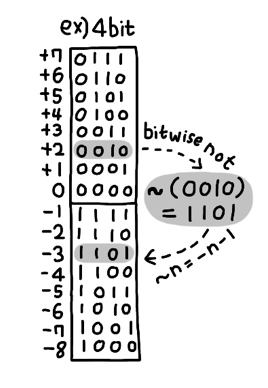 ex) 4bit
+7 0111
+6 0110
+5 0101
+4 0100
+3 0011
+2 0010
+1 0001
0 0000
-1 1111
-2 1110
-3 1101
-4 1100
-5 1011
-6 1010
-7 1001
-8 1000
bitwise not
~(0010)
= 1101
~n = -n-1